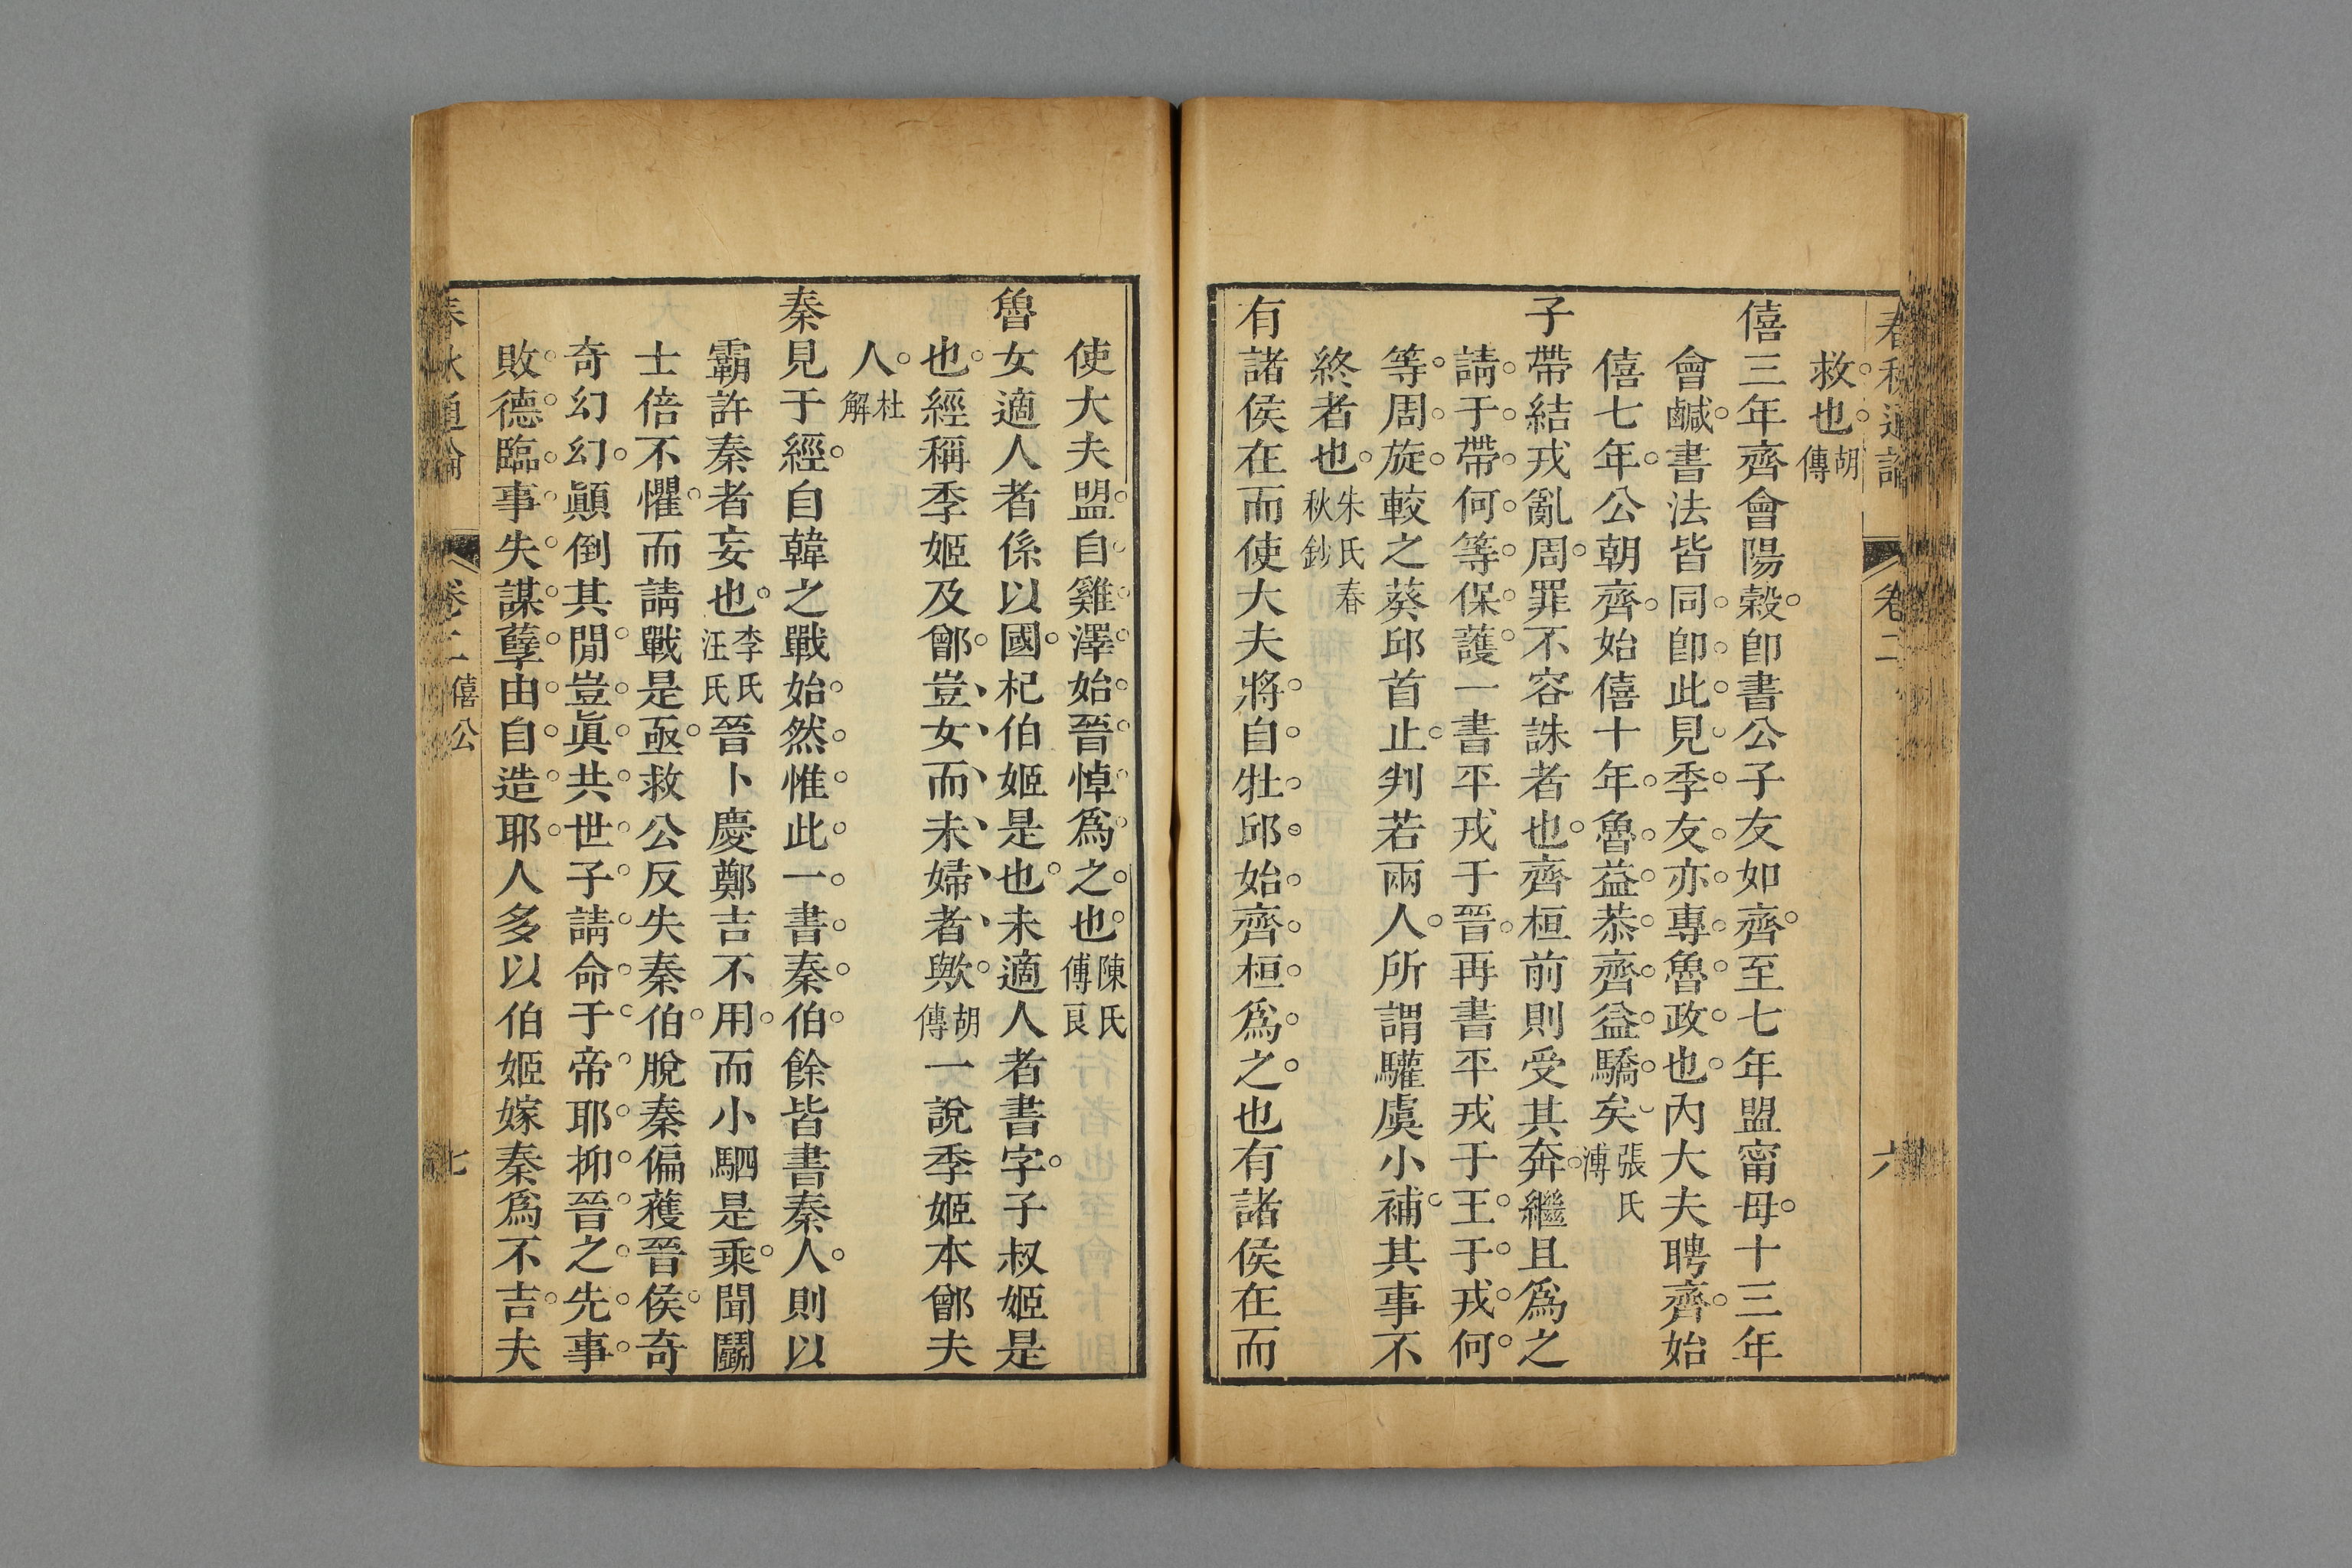 春秋通論 卷二 六
救也胡傳
僖三年齊會陽穀卽書公子友如齊至七年盟甯母十三年
會鹹書法皆同卽此見季友亦專魯政也內大夫聘齊始
僖七年公朝齊始僖十年魯益恭齊益驕矣張氏溥
子帶結戎亂周罪不容誅者也齊桓前則受其奔繼且爲之
請于帶何等保護一書平戎于晉再書平戎于王于戎何
等周旋較之葵邱首止判若兩人所謂驩虞小補其事不
終者也朱氏春秋鈔
有諸侯在而使大夫將自牡邱始齊桓爲之也有諸侯在而
使大夫盟自雞澤始晉悼爲之也陳氏傅良
魯女適人者係以國杞伯姬是也未適人者書字子叔姬是
也經稱季姬及鄫豈女而未婦者歟胡傳一說季姬本鄫夫
人杜解
秦見于經自韓之戰始然惟此一書秦伯餘皆書秦人則以
霸許秦者妄也李氏汪氏晉卜慶鄭吉不用而小駟是乘聞鬭
士倍不懼而請戰是亟救公反失秦伯脫秦偏蒦晉侯奇
奇幻幻顚倒其閒豈眞共世子請命于帝耶抑晉之先事
敗德臨事失謀孽由自造耶人多以伯姬嫁秦爲不吉夫
春秋通論 卷二 僖公 七